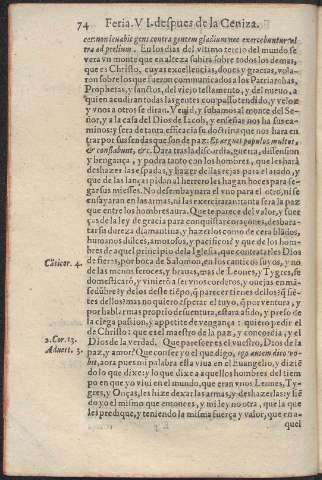 74 Feria.VI.despues de la Ceniza.
cer: non leuabit gens contra gentem gladium nec exercebuntur vl
tra ad prelium. En los dias del vltimo tercio del mundo se
vera vn monte que en alteza subirà sobre todos los demas,
que es Christo, cuyas excellencias, dotes y gracias, vola-
ron sobre los que fueron communicados a los Patriarchas,
Prophetas, y sanctos, del viejo testamento, y del nueuo, a
quien acudiran todas las gentes con passo tendido, y veloz
y vnos a otros se diran. Venid, y subamos al monte del Se-
ñor, y a la casa del Dios de Iacob, y enseñar nos ha sus ca-
minos; y sera de tanta efficacia su doctrina que nos hara en
trar por sus sendas que son de paz: Et arguet populos multos,
&
&c. Dara traslado
y vengança, y podra tanto con los hombres, que les harà
deshazer las espadas, y hazer de las rejas para el arado, y
que de las lanças pidan al herrero les hagan hoces para se-
gar sus miesses. No desembaynara el vno para el otro, ni se
ensayaran en las armas, ni las exercitaran: tanta sera la paz
que entre los hombres aura. Que te parece del valor, y fuer
ças de la ley de gracia para conquistar coraçones, desbara-
tar su dureza diamantina, y hazerlos como de cera blãdos,
humanos dulces, amorosos, y pacificos? y que de los hom-
bres de aquel principio de la Iglesia, que contrarles Dios
de fieras, por boca de Salomon, en los canticos suyos, y no
Cãticor. 4. de las menos feroces, y brauas, mas de Leones, y Tygres, se
domesticarõ, y vinieron a ser vnos corderos, y ouejas en mã-
sedũbre? y delos deste tiẽpo, q̃
tes dellos? mas no quiero esperar el tuyo, q̃ por ventura, y
por hablar mas proprio desuentura, estarà afido, y preso de
la ciega passion, y appetito de vengança: quiero pedir el
de Christo: que es el maestro de la paz, y concordia, y el
2. Cor. 13. Dios de la verdad. Que parescer es el vuestro, Dios de la
Aduert. 3. paz, y amor? Que consejo y el que digo, ego autem dico vo-
bis, aora pues mi palabra esta viua en el Euangelio, y diziẽ
do lo que dixe: y lo que dixe a aquellos hombres del tiem
po en que yo viui en el mundo, que eran vnos Leones, Ty-
gres, y Onças, les hize dexar las armas, y deshazerlas: y siẽ
do yo el mismo entonces, y mi ley no otra, que la que
les predique, y teniendo la misma fuerça y valor, que en a-
quel